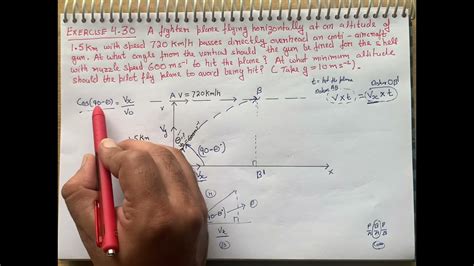 EXERCISE 4.30 A fighter plane flying horizontally at an altitude of
1.5 Km with speed 720 Km/h passes directly overhead an anti-aircraft
gun. At what angle from the vertical should the gun be fired for the shell
with muzzle speed 600 ms⁻¹ to hit the plane? At what minimum altitude
should the pilot fly plane to avoid being hit? (Take g = 10 ms⁻²).
t = hit the plane
Distance AB
V × t =
Vx × t
Cos(90-θ) = Vx
V0
A V = 720 km/h
B
x
Vy
θ
(90-θ)
5km
Vx
B'
x
θ
Vx